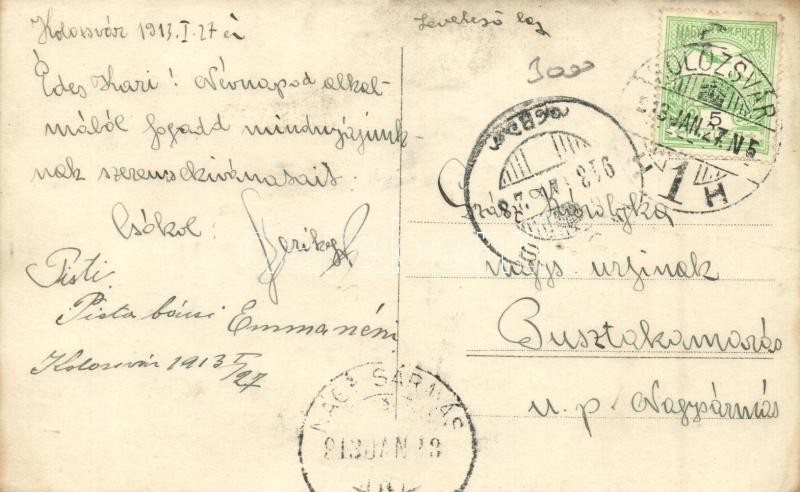 Kolozsvár 1913. I. 27 én
Édes Kari! Névnapod alkal-
mából fogadd mindnyájunk-
nak szerencsekivánatait.
Csókol:
Pisti
Pista bácsi Emma néni
Kolozsvár 1913 I/27
Levelező lap
3000
MAGYAR KIR. POSTA
KOLOZSVÁR
913 JAN. 27. N 5
1 H
5
Szász Károlyka
nagys. urfinak
Pusztakamarás
u. p. Nagysármás
NAGY SÁRMÁS
913 JAN